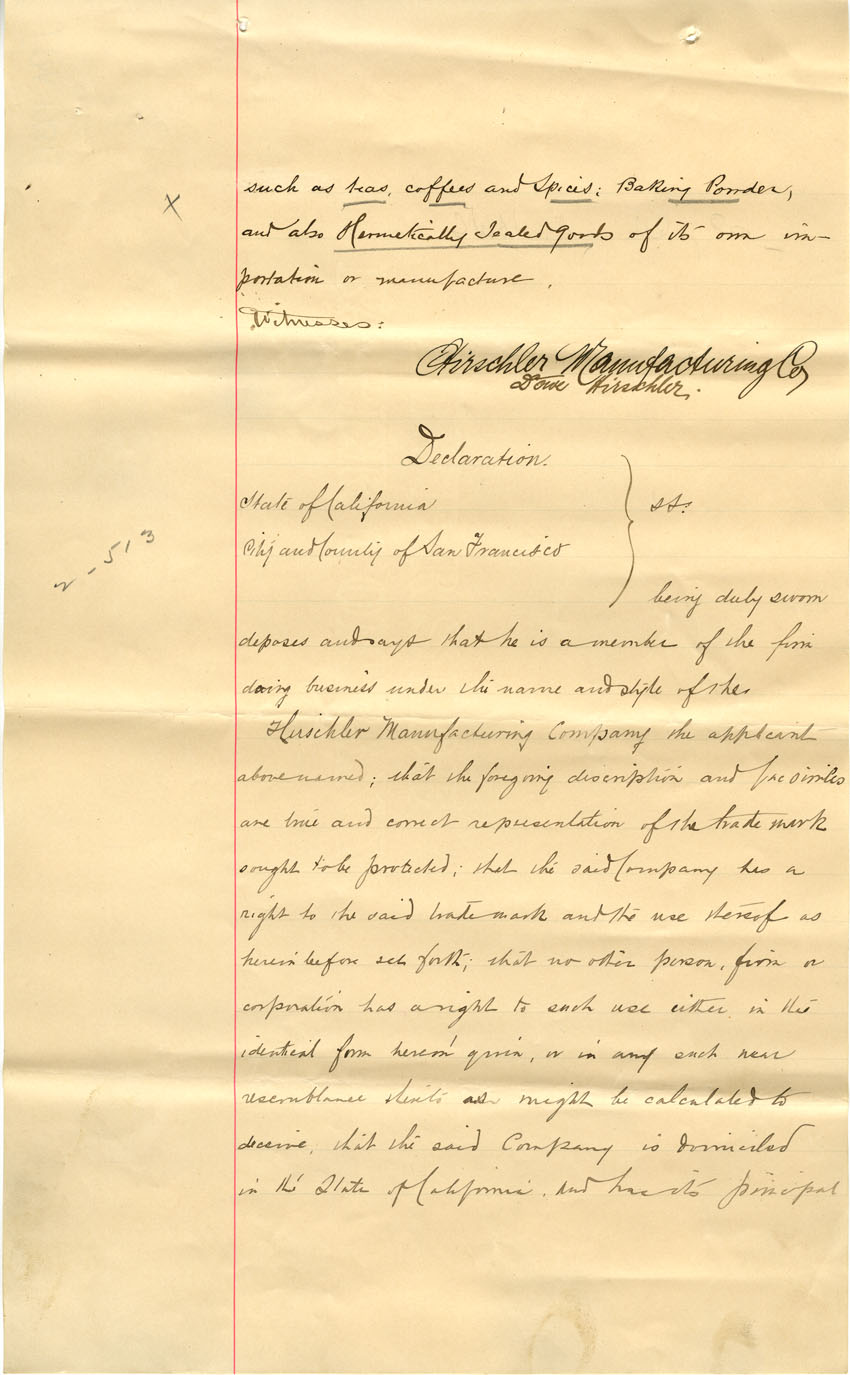 such as teas, coffees and Spices; Baking Powder,
X
and also Hermetically Sealed Goods of its own im-
portation or manufacture.
Witnesses:
Hirschler Manufacturing Co
Dave Hirschler.
Declaration.
State of California
ss:
City and County of San Francisco
2-513
being duly sworn
deposes and says that he is a member of the firm
doing business under the name and style of the
Hirschler Manufacturing Company the applicant
above named; that the foregoing discription and facsimiles
are true and correct representation of the trade mark
sought to be protected; that the said Company has a
right to the said trade mark and the use thereof as
herein before set forth; that no other person, firm or
corporation has a right to such use either in the
identical form herein given, or in any such near
resemblance thereto as might be calculated to
deceive, that the said Company is domiciled
in the State of California. and has its principal